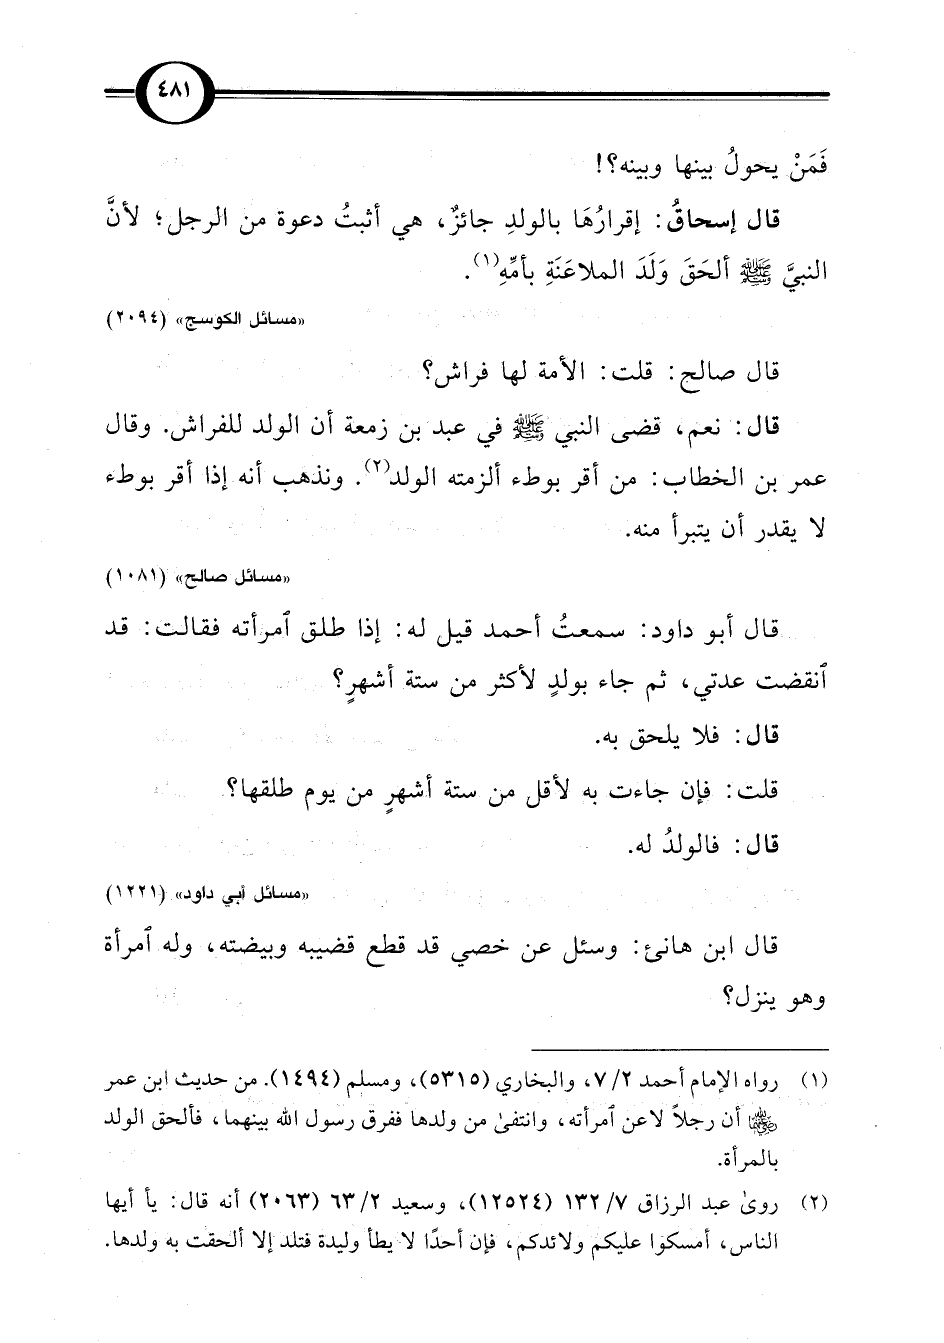 ٤٨١
فَمَنْ يحولُ بينها وبينه؟!
قال إسحاقُ: إقرارُهَا بالولدِ جائزٌ، هي أثبتُ دعوة من الرجل؛ لأنَّ
النبيَّ ﷺ ألحَقَ وَلَدَ الملاعَنَةِ بأمِّهِ(١).
«مسائل الكوسج» (٢٠٩٤)
قال صالح: قلت: الأمة لها فراش؟
قال: نعم، قضى النبي ﷺ في عبد بن زمعة أن الولد للفراش. وقال
عمر بن الخطاب: من أقر بوطء ألزمته الولد(٢). ونذهب أنه إذا أقر بوطء
لا يقدر أن يتبرأ منه.
«مسائل صالح» (١٠٨١)
قال أبو داود: سمعتُ أحمد قيل له: إذا طلق ٱمرأته فقالت: قد
ٱنقضت عدتي، ثم جاء بولدٍ لأكثر من ستة أشهرٍ؟
قال: فلا يلحق به.
قلت: فإن جاءت به لأقل من ستة أشهرٍ من يوم طلقها؟
قال: فالولدُ له.
«مسائل أبي داود» (١٢٢١)
قال ابن هانئ: وسئل عن خصي قد قطع قضيبه وبيضته، وله ٱمرأة
وهو ينزل؟
(١) رواه الإمام أحمد ٢/ ٧، والبخاري (٥٣١٥)، ومسلم (١٤٩٤). من حديث ابن عمر
رضي الله عنهما أن رجلاً لاعن ٱمرأته، وانتفىٰ من ولدها ففرق رسول الله بينهما، فألحق الولد
بالمرأة.
(٢) روىٰ عبد الرزاق ٧/ ١٣٢ (١٢٥٢٤)، وسعيد ٢/ ٦٣ (٢٠٦٣) أنه قال: يأ أيها
الناس، أمسكوا عليكم ولائدكم، فإن أحدًا لا يطأ وليدة فتلد إلا ألحقت به ولدها.